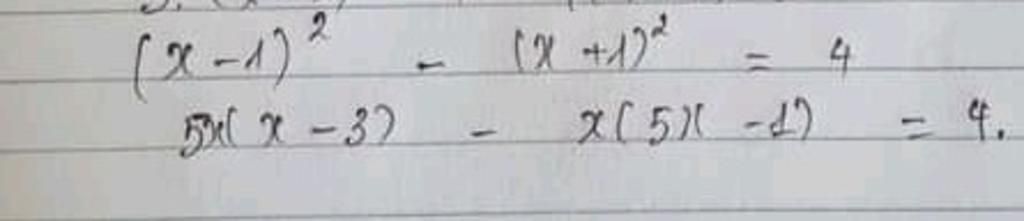 (x-1)² - (x+1)² = 4
5x(x-3) - x(5x-1) = 4.